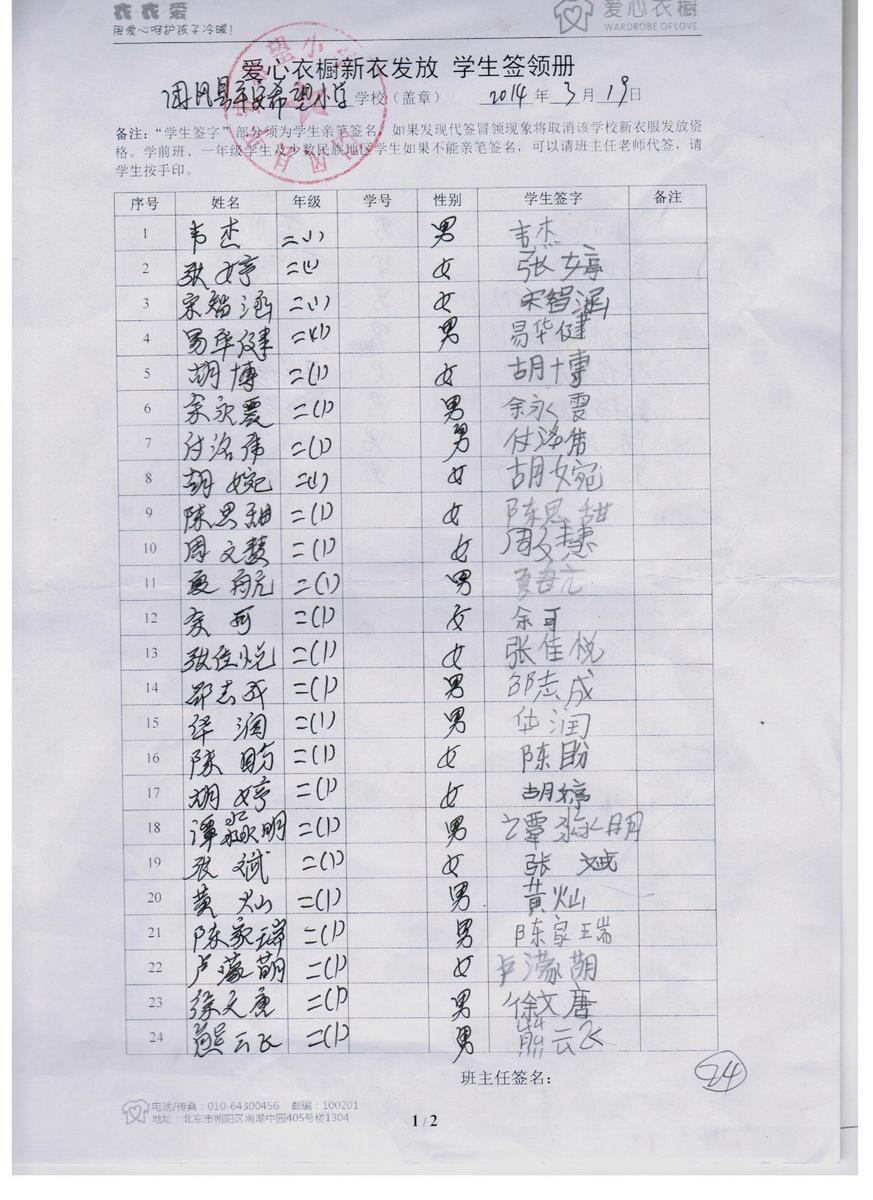 衣·衣·爱
用爱心呵护孩子冷暖！
爱心衣橱
WARDROBE OF LOVE
爱心衣橱新衣发放 学生签领册
平安希望小学 学校（盖章） 2014 年 3 月 19 日
备注：“学生签字”部分须为学生亲笔签名，如果发现代签冒领现象将取消该学校新衣服发放资
格。学前班、一年级学生及少数民族地区学生如果不能亲笔签名，可以请班主任老师代签，请
学生按手印。
序号 姓名 年级 学号 性别 学生签字 备注
1 韦杰 二(1) 男 韦杰
2 张婷 二(1) 女 张婷
3 宋智涵 二(1) 女 宋智涵
4 易华健 二(1) 男 易华健
5 胡博 二(1) 女 胡博
6 余永震 二(1) 男 余永
7 付洛伟 二(1) 男 付洛伟
8 胡婉 二(1) 女 胡婉
9 陈思甜 二(1) 女 陈思甜
10 周文慧 二(1) 女 周文慧
11 夏 二(1) 男 夏
12 余可 二(1) 女 余可
13 张佳悦 二(1) 女 张佳悦
14 邵志成 二(1) 男 邵志成
15 华润 二(1) 男 华润
16 陈盼 二(1) 女 陈盼
17 胡婷 二(1) 女 胡婷
18 谭淼明 二(1) 男 谭淼明
19 张斌 二(1) 女 张斌
20 黄灿 二(1) 男 黄灿
21 陈家瑞 二(1) 男 陈家瑞
22 卢蒙萌 二(1) 女 卢
23 徐文唐 二(1) 男 徐文唐
24 熊云飞 二(1) 男 熊云飞
班主任签名：
24
电话/传真：010-64300456 邮编：100201
地址：北京市朝阳区南湖中园405号楼1304
1 / 2